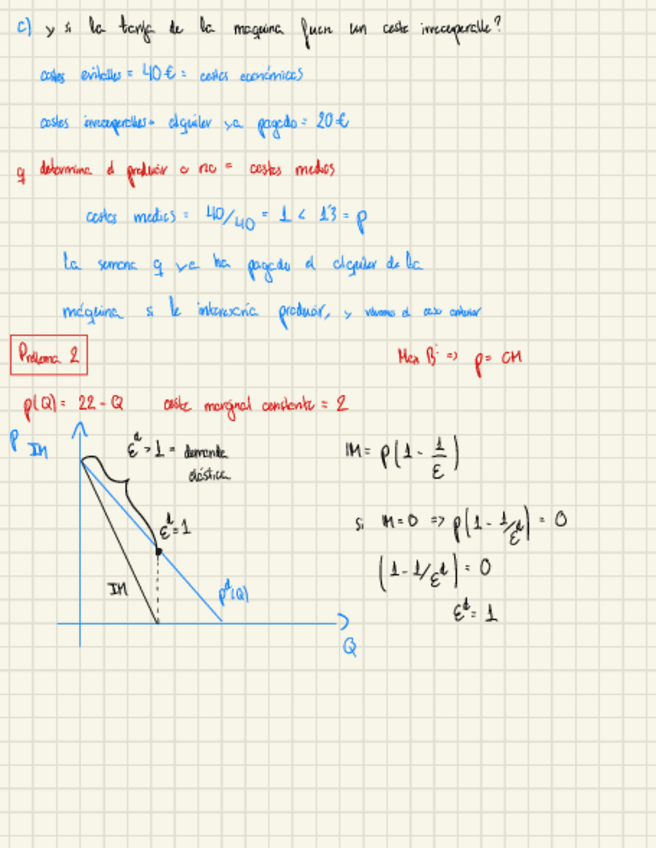 c) y si la tarifa de la maquina fuera un coste irrecuperable?
costes evitables = 40€ = costes económicos
costes irrecuperables = alquiler ya pagado = 20€
q determina el producir o no = costes medios
costes medios = 40/40 = 1 < 1'3 = p
la semana q ya ha pagado el alquiler de la
máquina si le interesaría producir, y veíamos el caso anterior
Problema 2
Max B: => p = CM
p(Q) = 22 - Q coste marginal constante = 2
P IM
ε^d > 1 = demanda
elástica
IM = p(1 - 1/ε)
ε^d = 1
si IM = 0 => p(1 - 1/ε^d) = 0
(1 - 1/ε^d) = 0
IM
p^d(Q)
ε^d = 1
Q